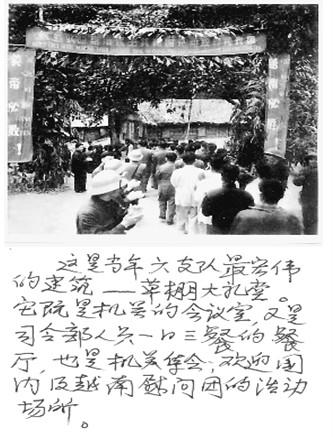 美帝必败!
越南必胜!
这是当年六支队最宏伟
的建筑——草棚大礼堂。
它既是机关的会议室,又是
司令部人员一日三餐的餐
厅,也是机关集会,欢迎国
内及越南慰问团的活动
场所。